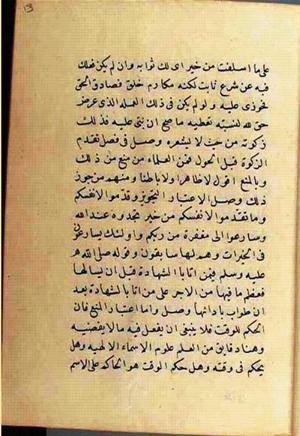 على ما اسلفت من خير اى لك ثوابه وان لم يكن فعلك
فيه عن شرع ثابت لكنه مكارم خلق فصادق الحق
فجوزى عليه ولو لم يكن فى ذلك العمله الذى عرض
حق لله لنسبته تعطيه ما صح ان يثنى عليه فذلك
زكوته من حيث لا يشعر وصل فى فصل تقدم
الزكوة قبل الحول فمن العلماء من منع من ذلك
وبالمنع اقول لا ظاهرا ولا باطنا ومنهم من جوز
ذلك وصل الاعتبار التجوز وقدموا لانفسكم
وما تقدموا لانفسكم من خير تجدوه عند الله
وسارعوا الى مغفرة من ربكم واولئك يسارعون
فى الخيرات وهم لها سابقون وقوله صلى الله
عليه وسلم فيمن اتا بالشهادة قبل ان يسالها
فعظم ما فيها من الاجر على من اتا بالشهادة بعد
ان طولب بادائها وصل واما اعتبار المنع فان
الحكم للوقت فلا ينبغى ان يفعل فيه ما لا يقتضيه
وهنا دقايق من العلم علوم الاسماء الالهية وهل
يحكم فى وقته وهل حكم الوقت هو الحاكم على الاسم